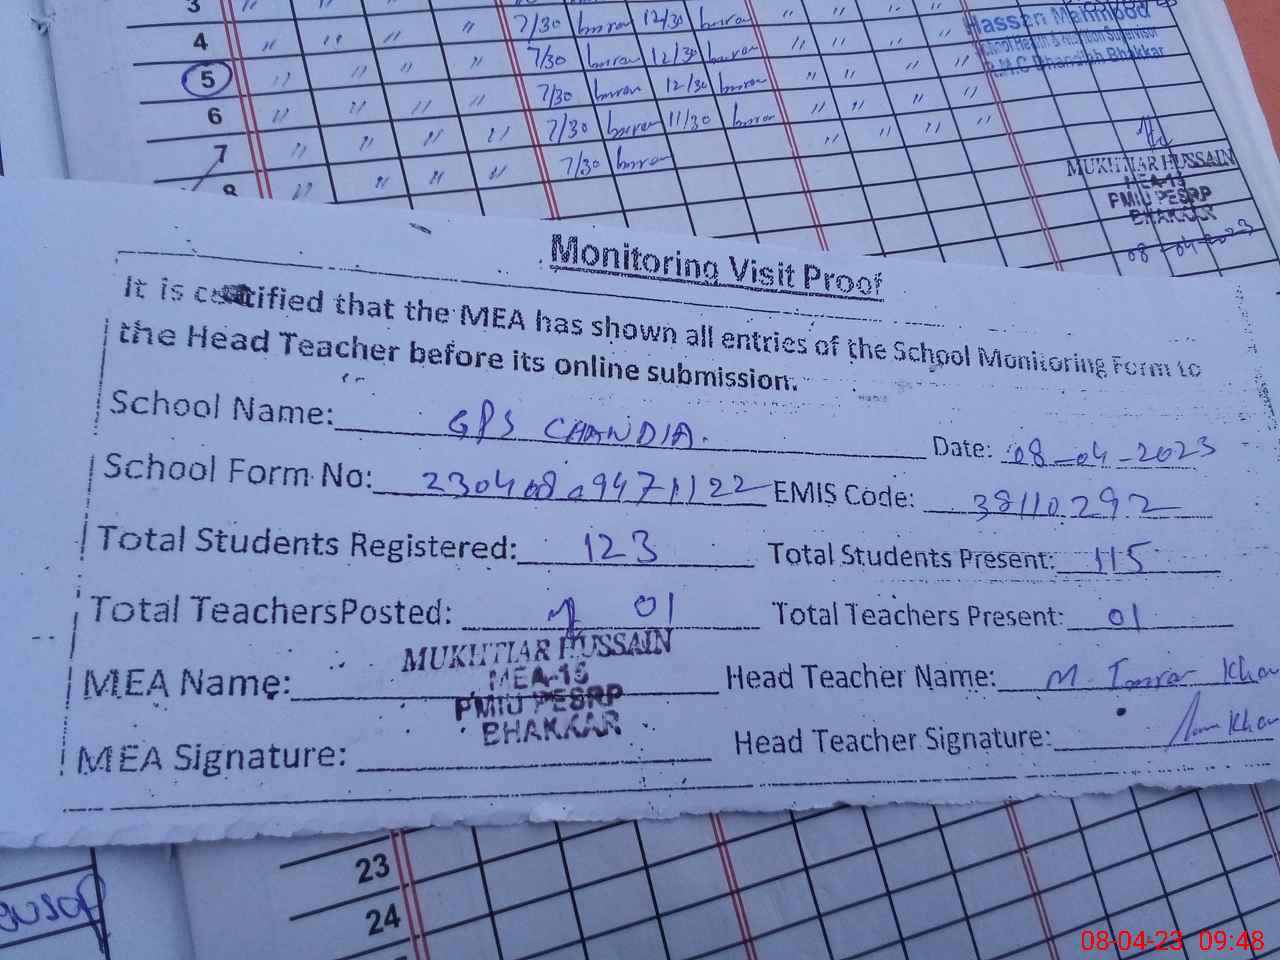 3 " " " " 7/30 12/30 " " " "
4 " " " " 7/30 12/30 " " " "
5 " " " " 7/30 12/30 " " " "
6 " " " " 7/30 11/30 " " " "
7 " " " " 7/30 " " " "
8 " " " "
Hassan Mahmood
School Health & Nutrition Supervisor
Bhakkar
MUKHTIAR HUSSAIN
MEA-15
PMIU PESRP
BHAKKAR
08-04-2023
Monitoring Visit Proof
It is certified that the MEA has shown all entries of the School Monitoring Form to
the Head Teacher before its online submission.
School Name: GPS CHANDIA. Date: 08-04-2023
School Form No: 230408 09471122 EMIS Code: 38110292
Total Students Registered: 123 Total Students Present: 115
Total TeachersPosted: 01 Total Teachers Present: 01
MUKHTIAR HUSSAIN
MEA-15
PMIU PESRP
BHAKKAR
MEA Name: Head Teacher Name: M. Imran Khan
MEA Signature: Head Teacher Signature: Khan
23
24
08-04-23 09:48